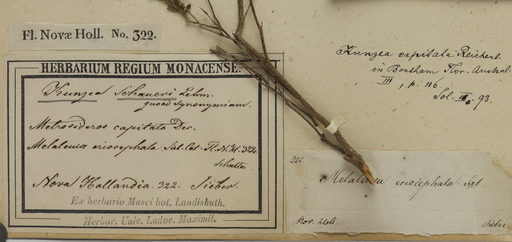 Fl. Novæ Holl. No. 322.
HERBARIUM REGIUM MONACENSE.
Kunzea Schaueri Lehm.
quoad synonymiam.
Metrosideros capitata Dec.
Melaleuca eriocephala Sieb. Cat. Fl. N. H. 322.
Schultes
Nova Hollandia. 322. Sieber.
Ex herbario Musei bot. Landishuth.
Herbar. Univ. Ludov. Maximil.
Kunzea capitata Reichenb.
in Bentham Flor. Austral.
III, p. 116
93.
322
Melaleuca eriocephala
Nov. Holl.
Sieber